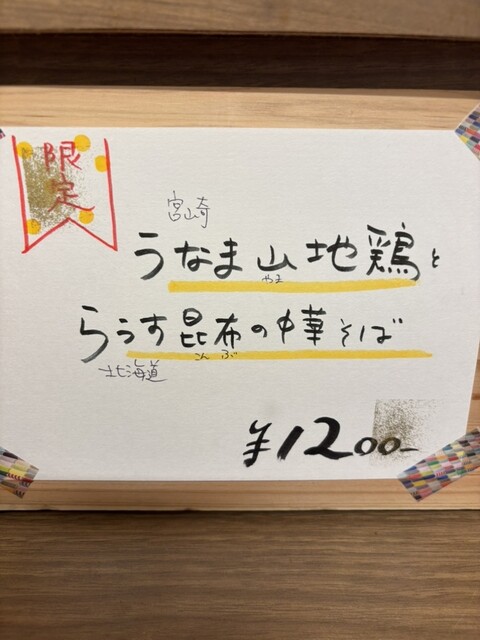 限定
宮崎
うなま山地鶏と
やま
らうす昆布の中華そば
こんぶ
北海道
¥1200-